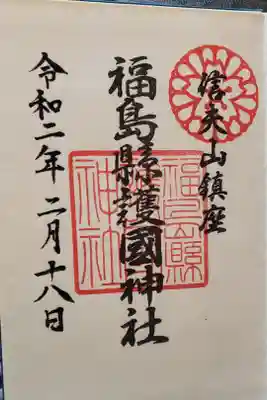 信夫山鎮座
福島縣護國神社
福島縣護國神社
令和二年二月十八日